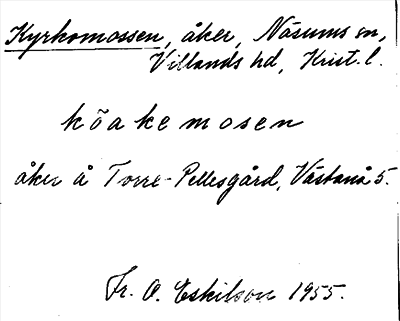 Kyrkomossen, åker, Näsums sn,
Villands hd, Krist. l.
kõakemosen
åker å Torre-Pellesgård, Västanå 5.
Fr. O. Eskilson 1955.